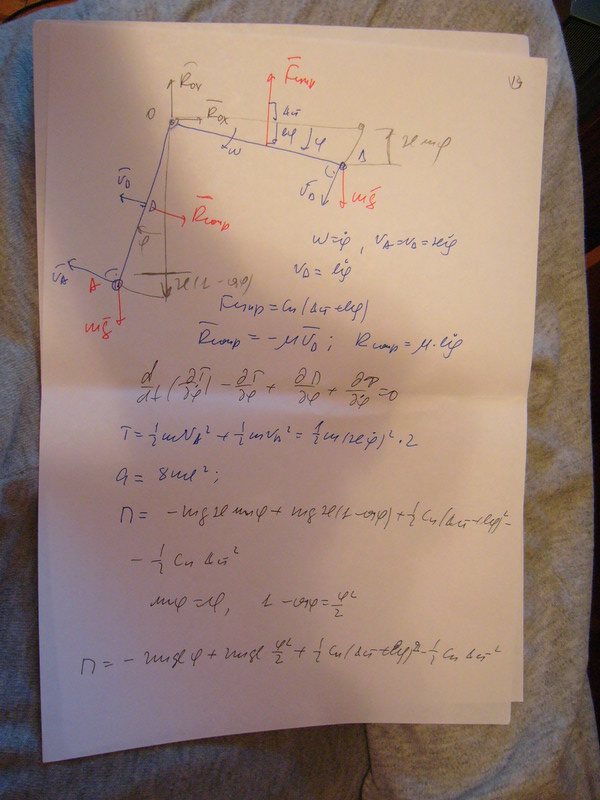 F̄упр
R̄oy
O
R̄ox
Δст
lφ
φ
ω
B
2l sinφ
v̄D
v̄B
mḡ
D
R̄сопр
φ
v̄A
A
2l(1-cosφ)
mḡ
ω=φ̇, vA=vB=2lφ̇
vD=lφ̇
Fупр=Cп(Δст+lφ)
R̄сопр=-μv̄D; Rсопр=μ·lφ̇
d/dt(∂T/∂φ̇)-∂T/∂φ+∂П/∂φ+∂Φ/∂φ̇=0
T=½mvA²+½mvB²=½m(2lφ̇)²·2
a=8ml²;
П= -mg2l sinφ+mg2l(1-cosφ)+½Cп(Δст+lφ)²-
-½Cп Δст²
sinφ=φ, 1-cosφ=φ²/2
П=-2mglφ+2mgl φ²/2+½Cп(Δст+lφ)²-½Cп Δст²